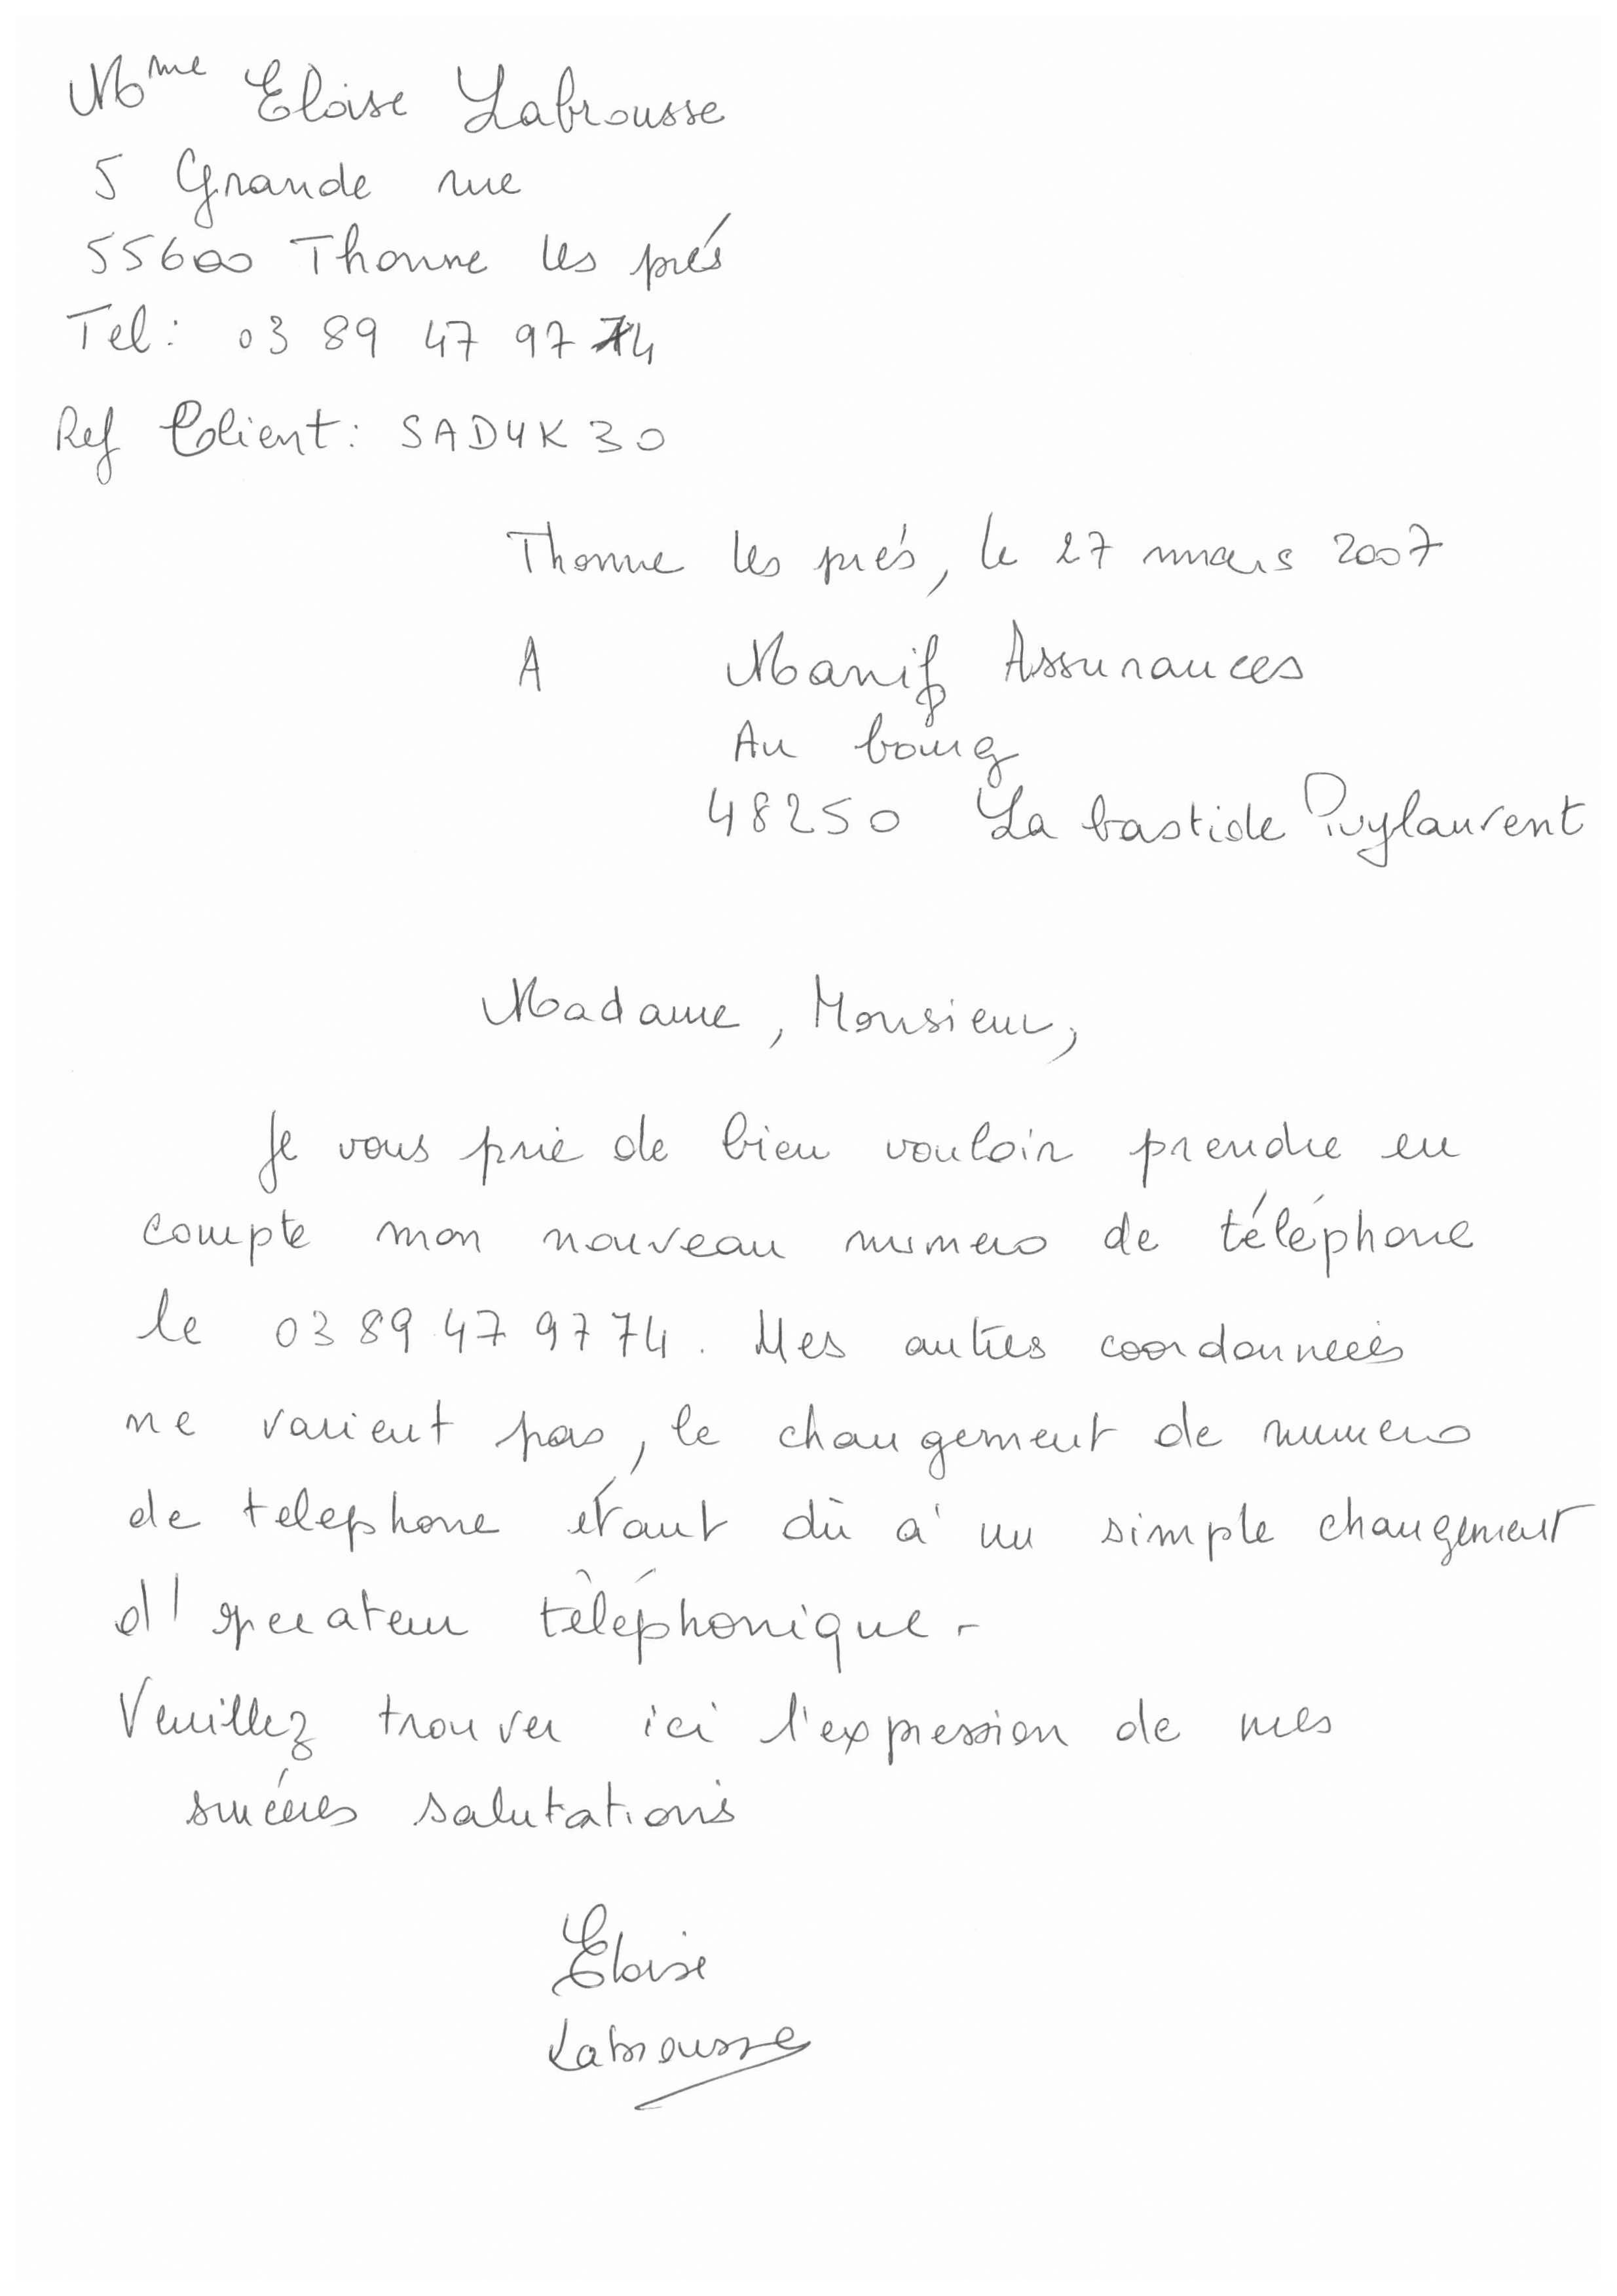 Mme Eloise Labrousse
5 Grande rue
55600 Thonne les prés
Tel: 03 89 47 97 74
Ref Client: SAD4K30
Thonne les prés, le 27 mars 2007
A Manif Assurances
Au bourg
48250 La bastide Puylaurent
Madame, Monsieur,
Je vous prie de bien vouloir prendre en
compte mon nouveau numero de téléphone
le 03 89 47 97 74. Mes autres coordonnées
ne varient pas, le changement de numero
de telephone étant dû à un simple changement
d'operateur téléphonique.
Veuillez trouver ici l'expression de mes
sincères salutations
Eloise
Labrousse